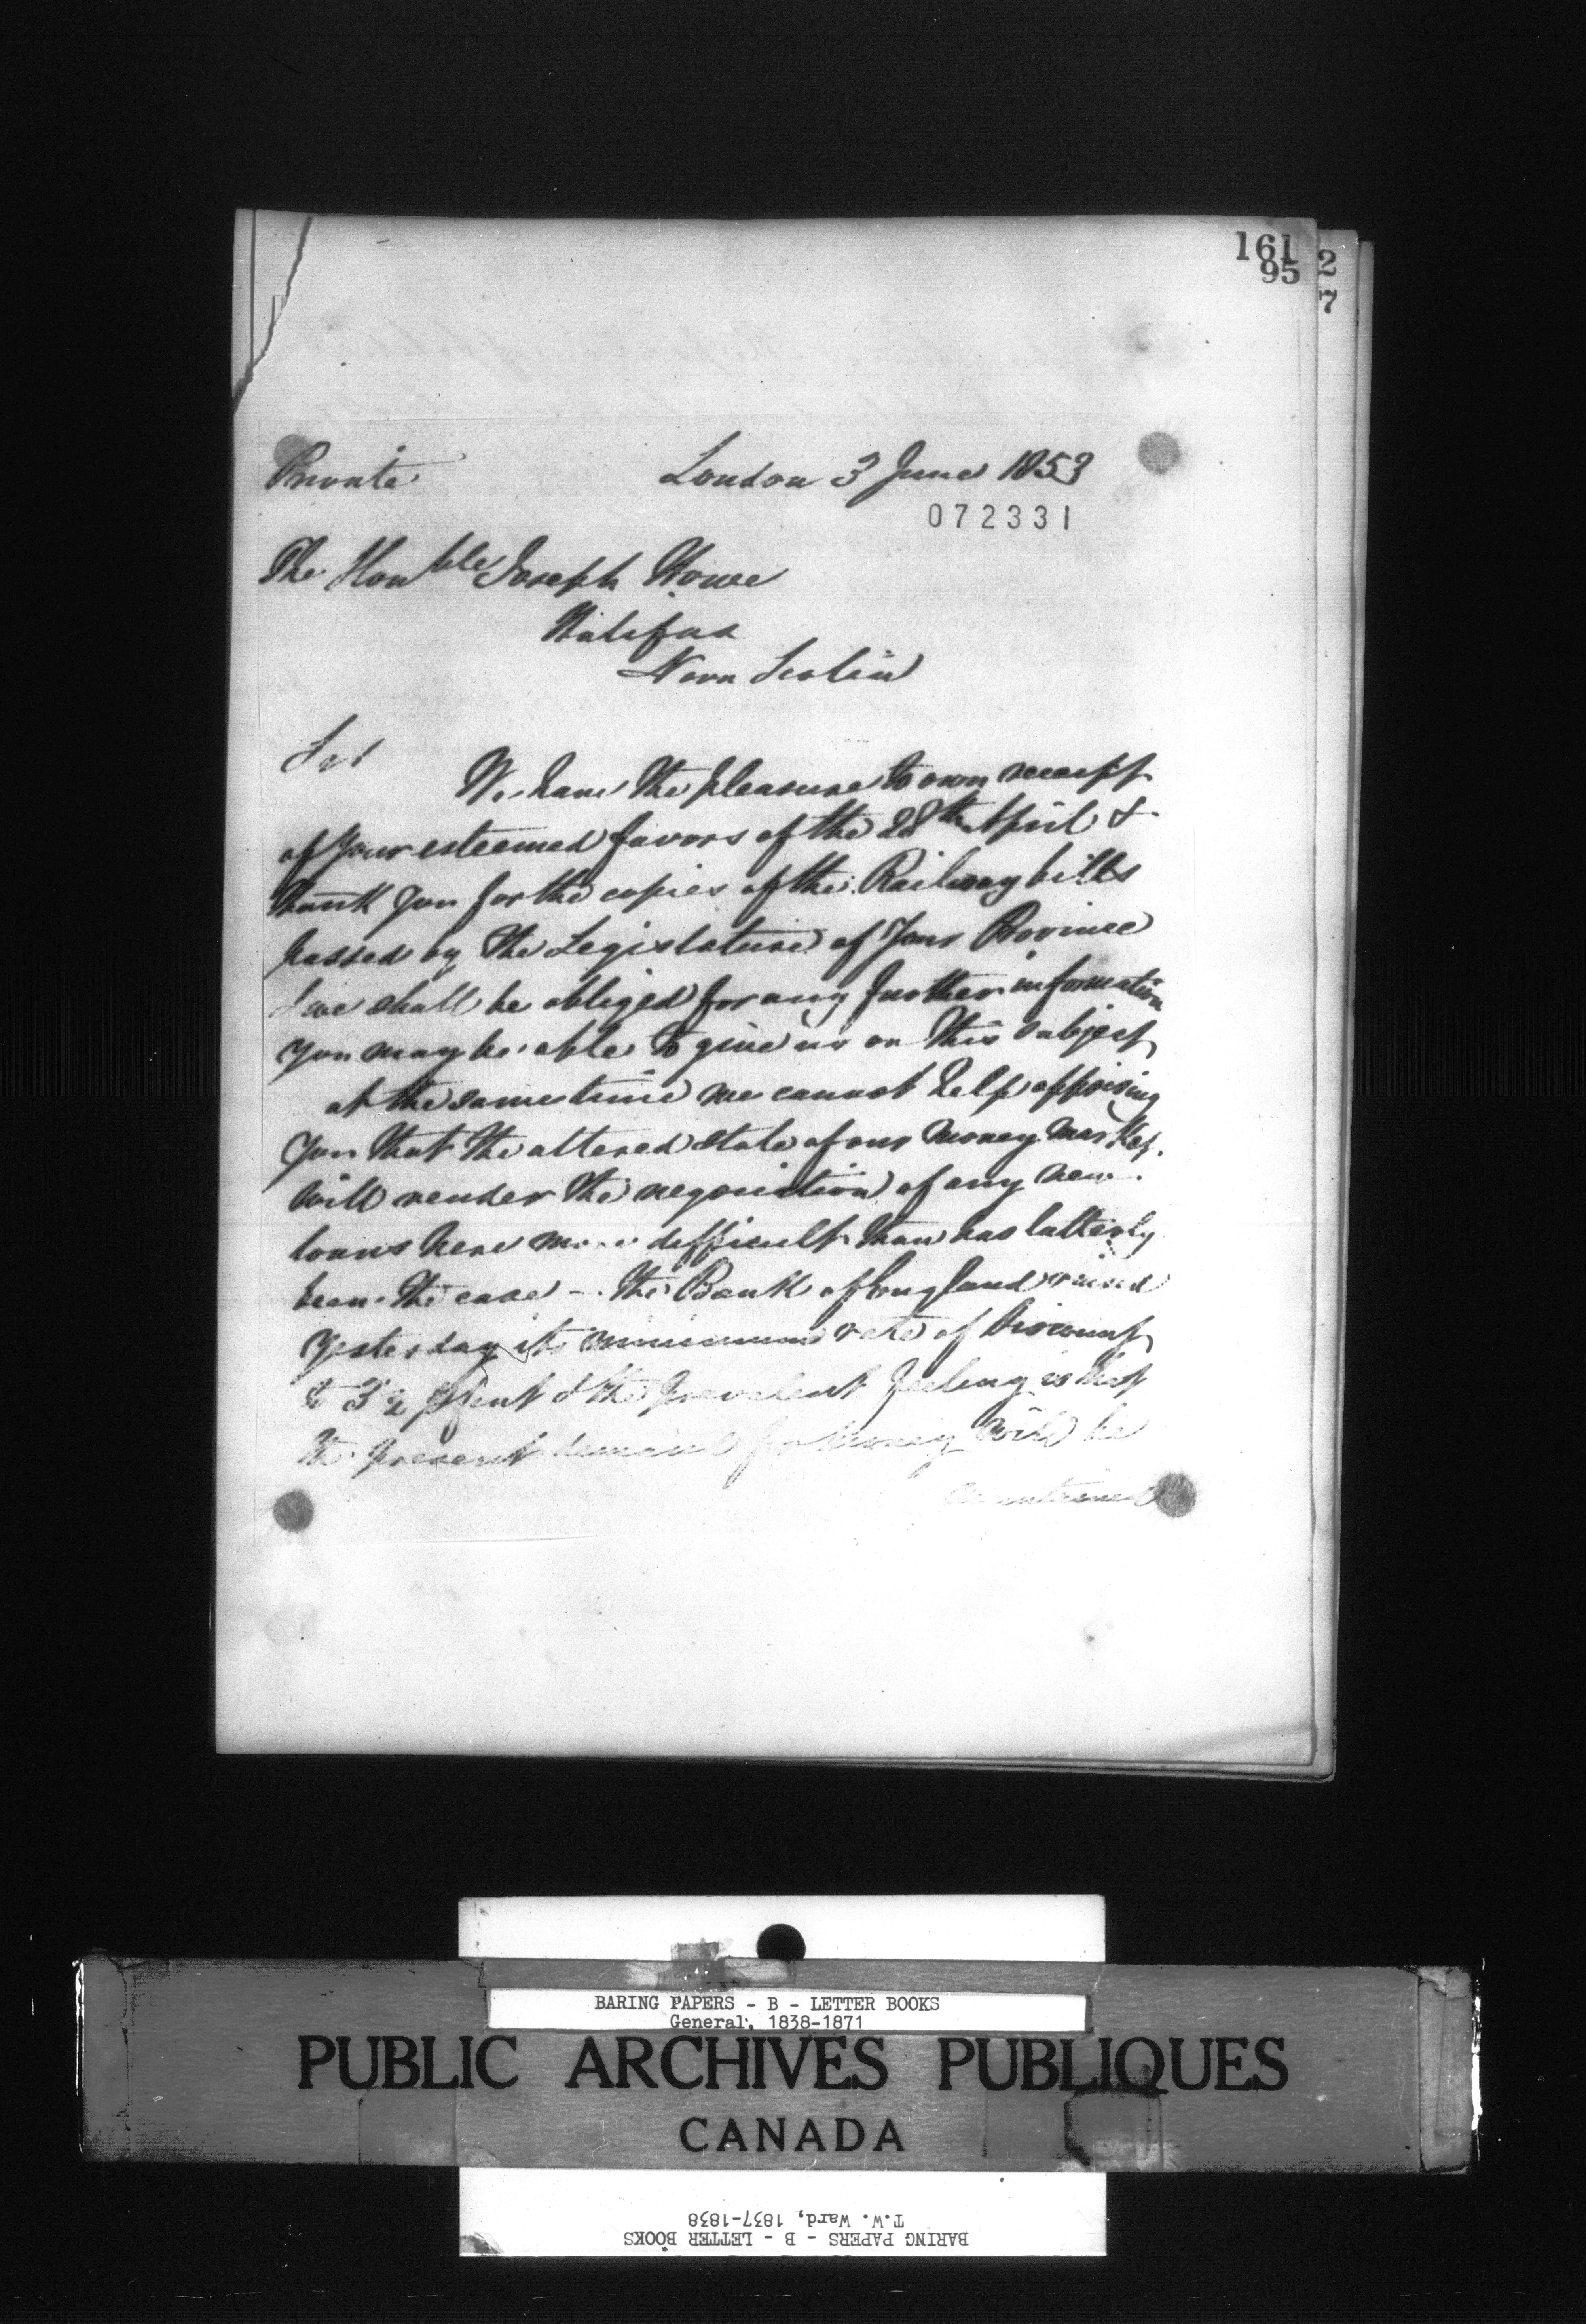 161
95
2
7
Private London 3 June 1853
072331
The Honble Joseph Howe
Halifax
Nova Scotia
Sir
We have the pleasure to own receipt
of your esteemed favors of the 28th April &
thank you for the copies of the Railway bills
passed by the Legislature of your Province
& we shall be obliged for any further information
you may be able to give us on this subject
at the same time we cannot help apprising
you that the altered state of our money market
will render the negociation of any new
loans here more difficult than has latterly
been the case - the Bank of England raised
yesterday its minimum rate of discount
to 3 1/2 pCent & the prevalent feeling is that
the present demand for money will be
maintained
BARING PAPERS - B - LETTER BOOKS
General, 1838-1871
PUBLIC ARCHIVES PUBLIQUES
CANADA
BARING PAPERS - B - LETTER BOOKS
T.W. Ward, 1837-1838